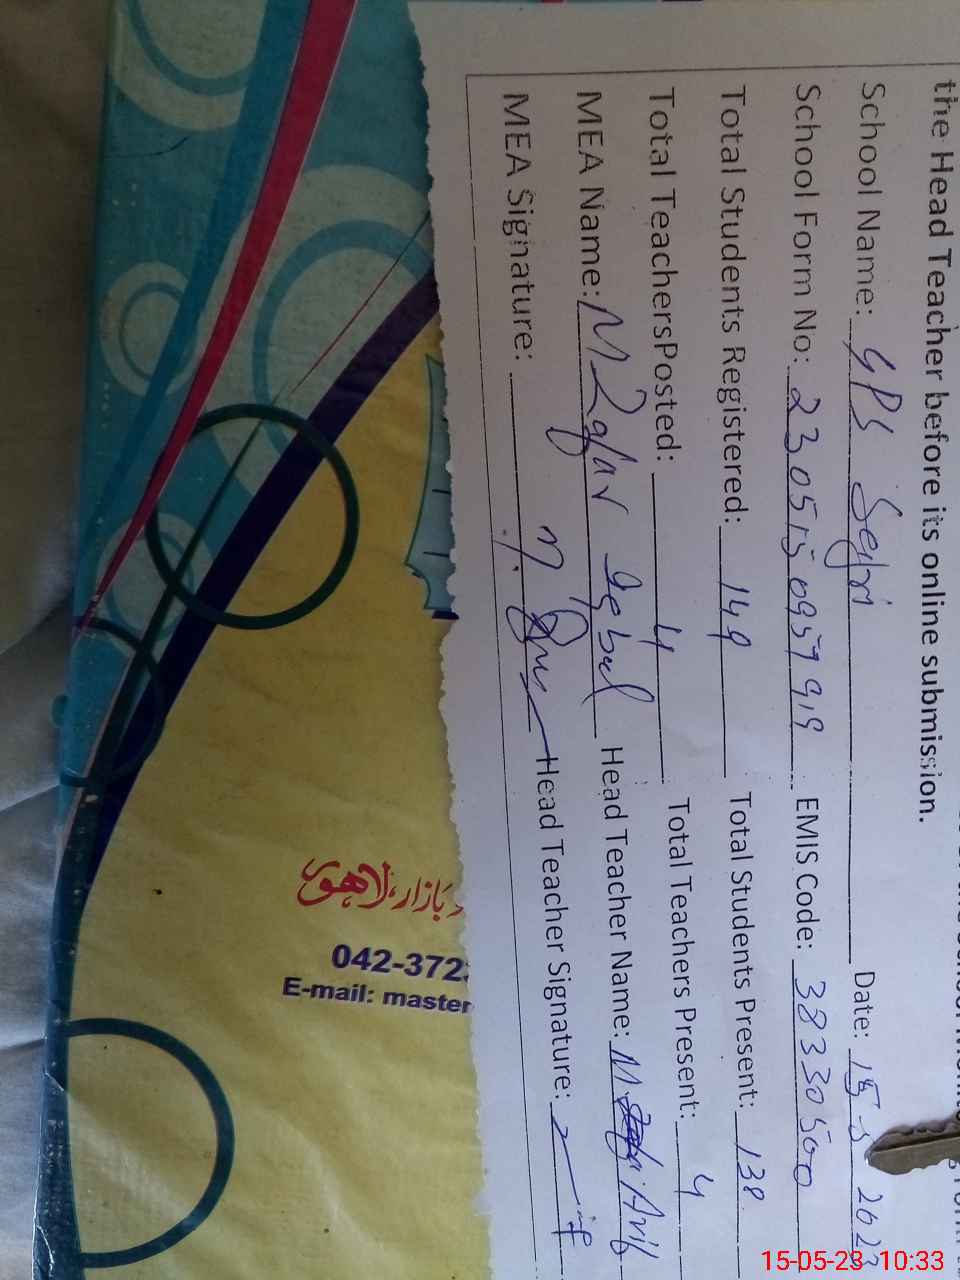 the Head Teacher before its online submission.
School Name: GPS Date: 15-5 2023
School Form No: 230515095919 EMIS Code: 38330500
Total Students Registered: 149 Total Students Present: 138
Total TeachersPosted: 4 Total Teachers Present: 4
MEA Name: M Zafar Iqbal Head Teacher Name: M Arif
MEA Signature: Head Teacher Signature:
بازار، لاہور
042-372
E-mail: master
15-05-23 10:33